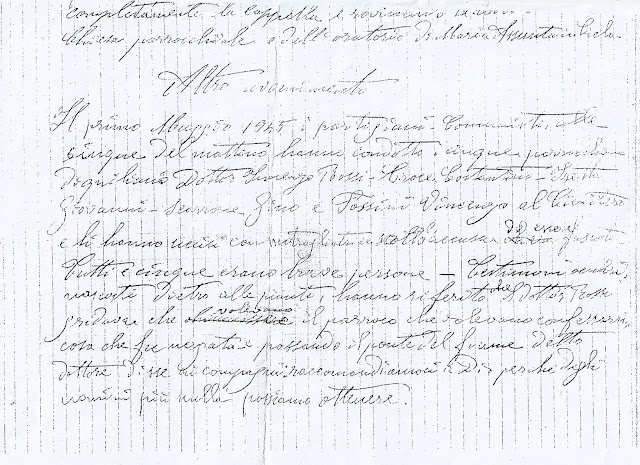 completamente la cappella, e rovinando
Chiesa parrocchiale e dell'oratorio di Maria Assunta in Cielo.
Altro avvenimento
Il primo Maggio 1945 i partigiani Comunisti, alle
cinque del mattino hanno condotto i cinque parrocchiani
Dottor Vincenzo Rossi - Croce Costantino -
Giovanni - Scarrone Gino e Fossini Vincenzo al Cimitero
e li hanno uccisi con mitraglia sotto accusa di essere fascisti
Tutti e cinque erano brave persone - Testimoni oculari,
nascosti dietro alle piante, hanno riferito che il dottor Rossi
gridava che volevano il parroco che volevano confessarsi,
cosa che fu negata e passando il ponte del fiume detto
dottore disse ai compagni raccomandiamoci a Dio perchè dagli
uomini più nulla possiamo ottenere.